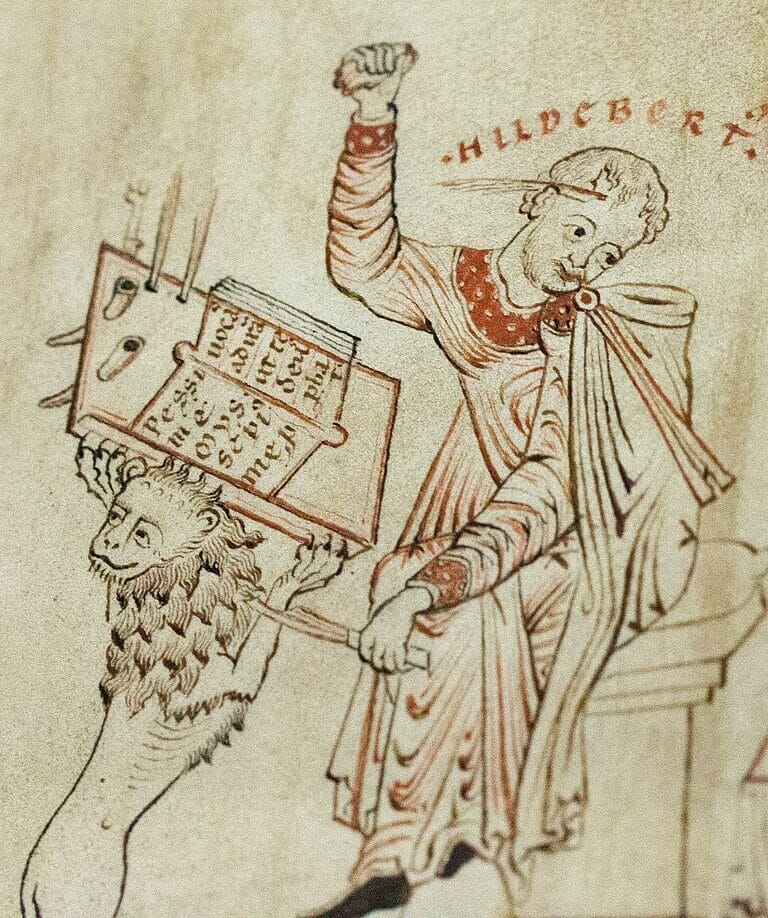 ·HILDEBERTꝰ·
Pessi
me
mus
sepiꝰ
me p
uocas
ad irā
ut te
deus
pdat